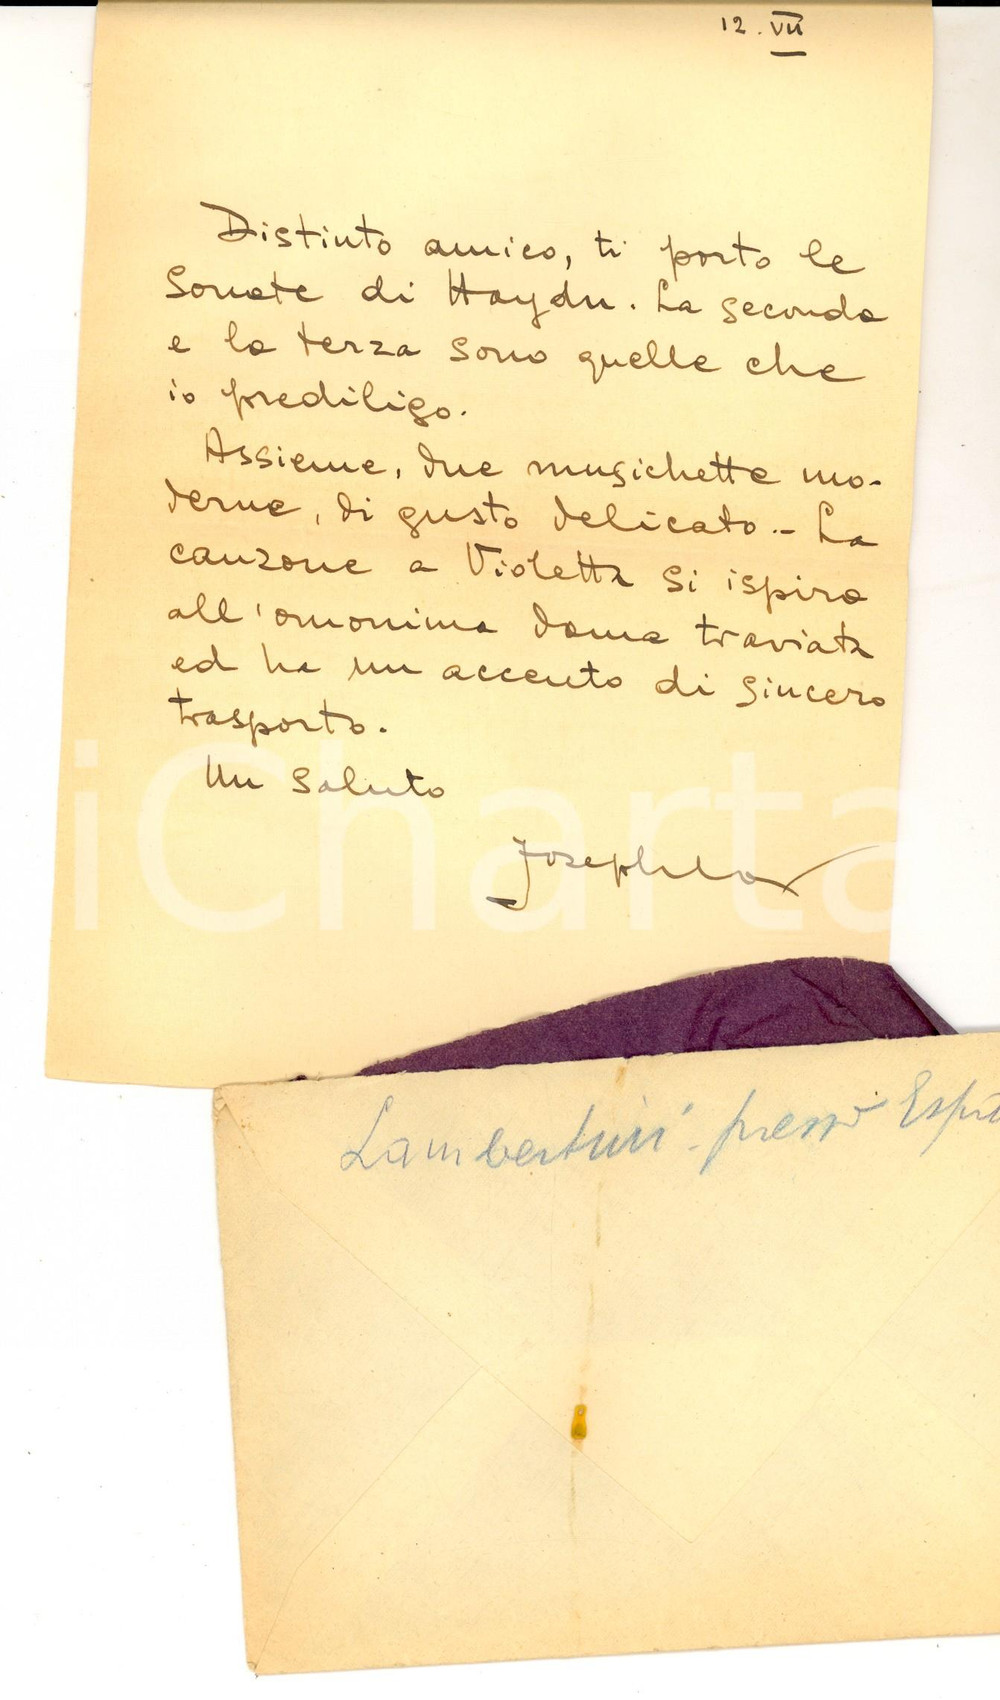 12. VII
Distinto amico, ti porto le
Sonate di Haydn. La seconda
e la terza sono quelle che
io prediligo.
Assieme, due musichette mo-
derne, di gusto delicato.- La
canzone a Violetta si ispira
all'omonima dama traviata
ed ha un accento di sincero
trasporto.
Un saluto
iCharta
Lambertini - presso